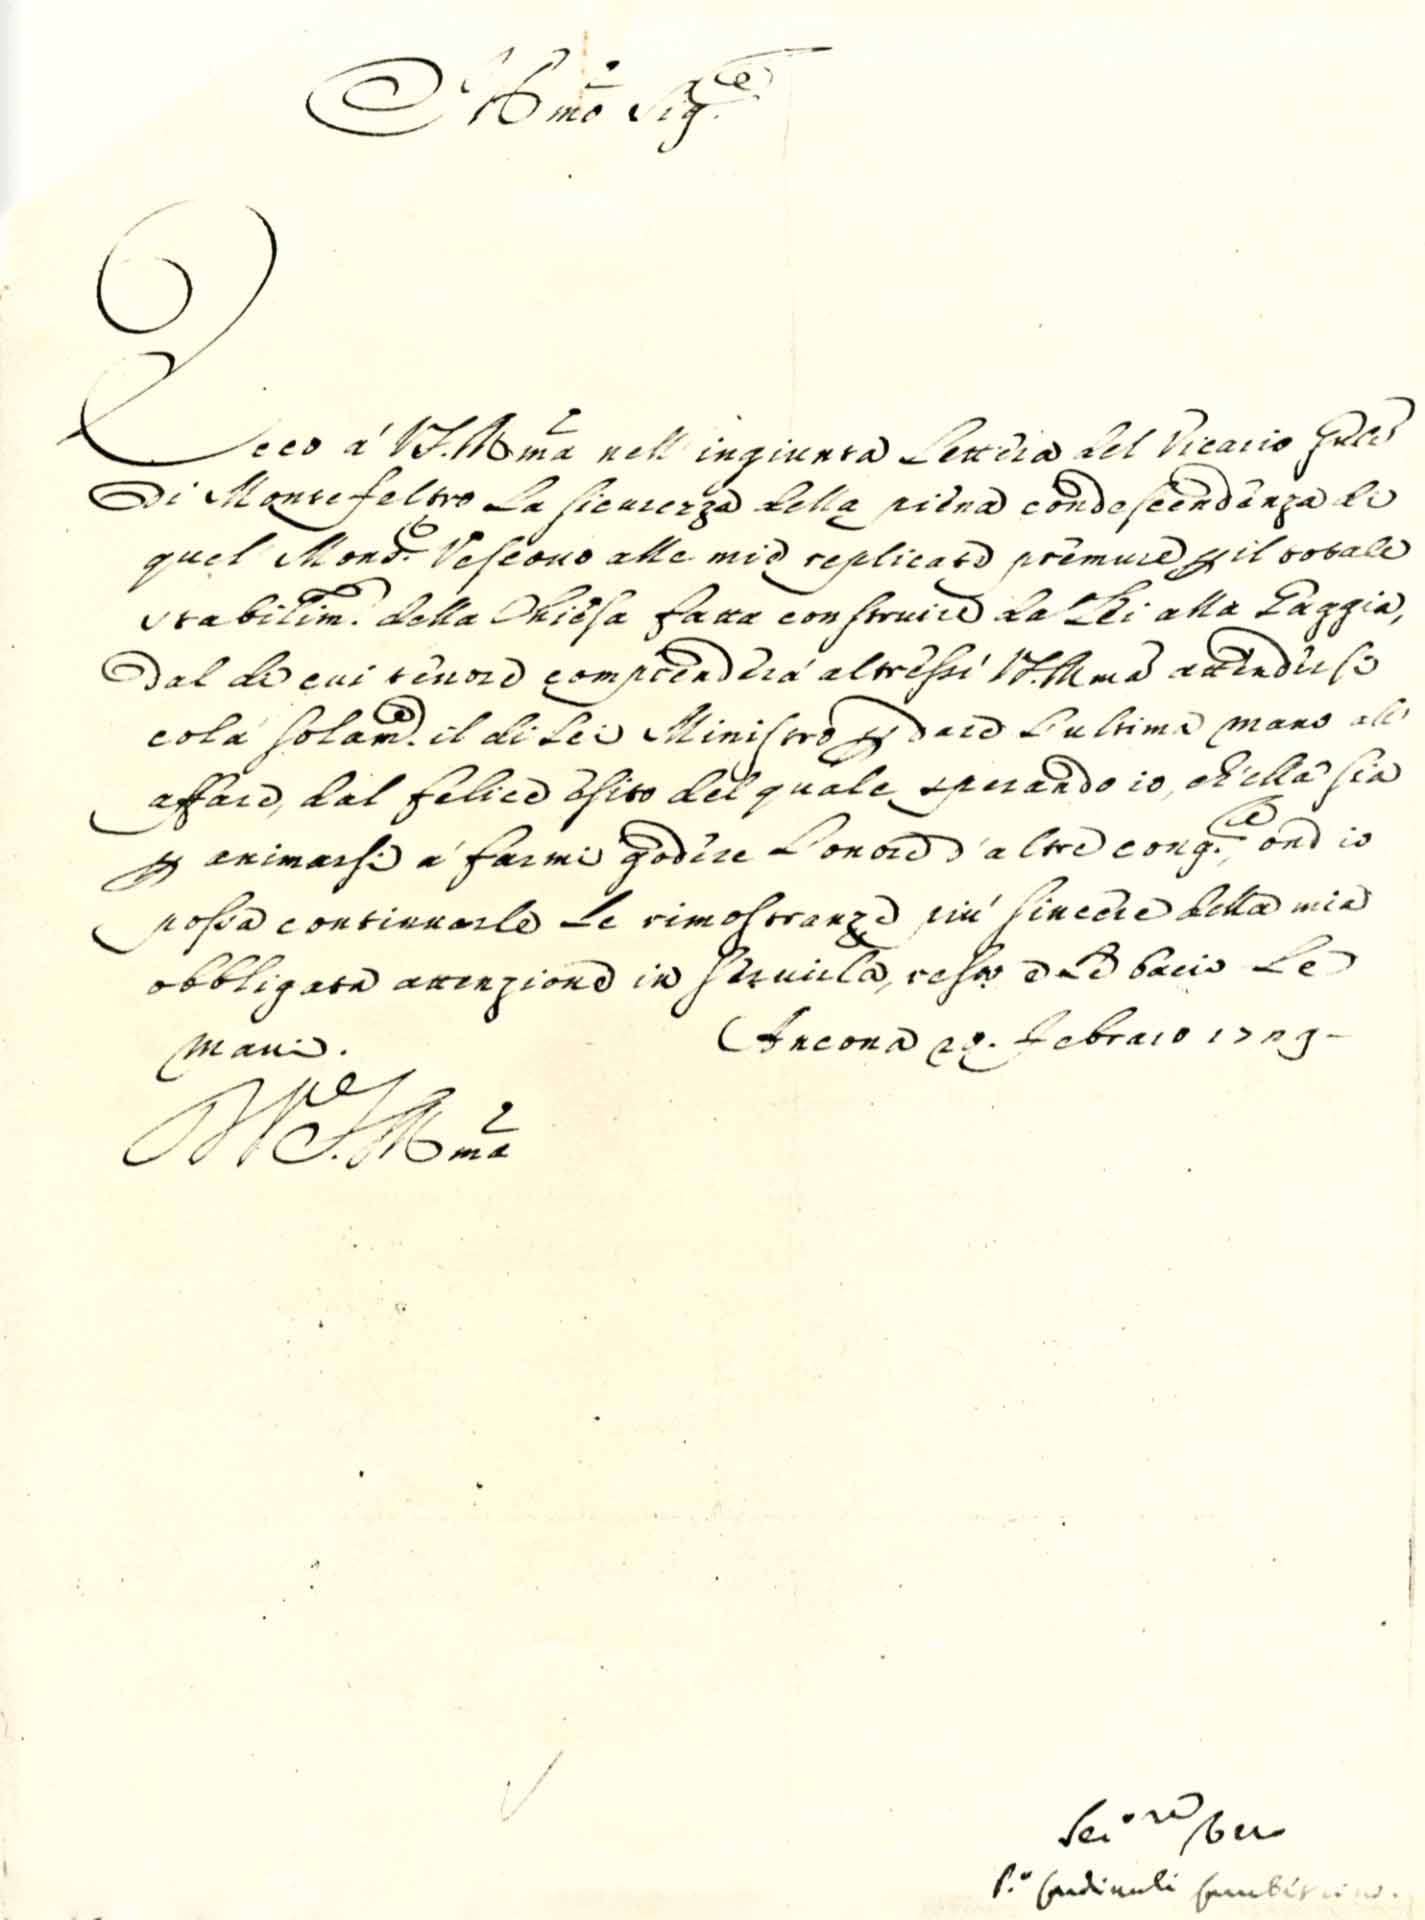 Ill.mo Sig.re
Ecco a' V.S. Ill.ma nell' ingiunta Lettera del Vicario Gn̄le
di Monte feltro La sicurezza della piena condescendenza di
quel Mons.r Vescouo alle mie replicate premure p il totale
stabilim.to della Chiesa fatta construire da Lei alla Faggia,
dal di cui tenore comprenderà altressì V.S. Ill.ma attendersi
colà solam.te il di Lei Ministro p dare L'ultima mano all'
affare, dal felice esito del quale sperando io, ch'ella sia
p animarsi a' farmi godere L'onore d'altre cong.re, ond io
possa continuarle Le rimostranze più sincere della mia
obbligata attenzione in seruirla, resto e Le bacio Le
mani. Ancona 29. Febraio
V.S. Ill.ma
Ser.re
P.